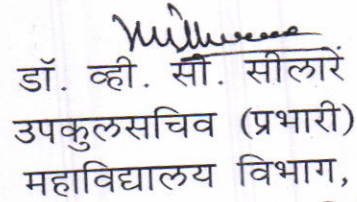 डॉ. व्ही. सी. सीलारें
उपकुलसचिव (प्रभारी)
महाविद्यालय विभाग,